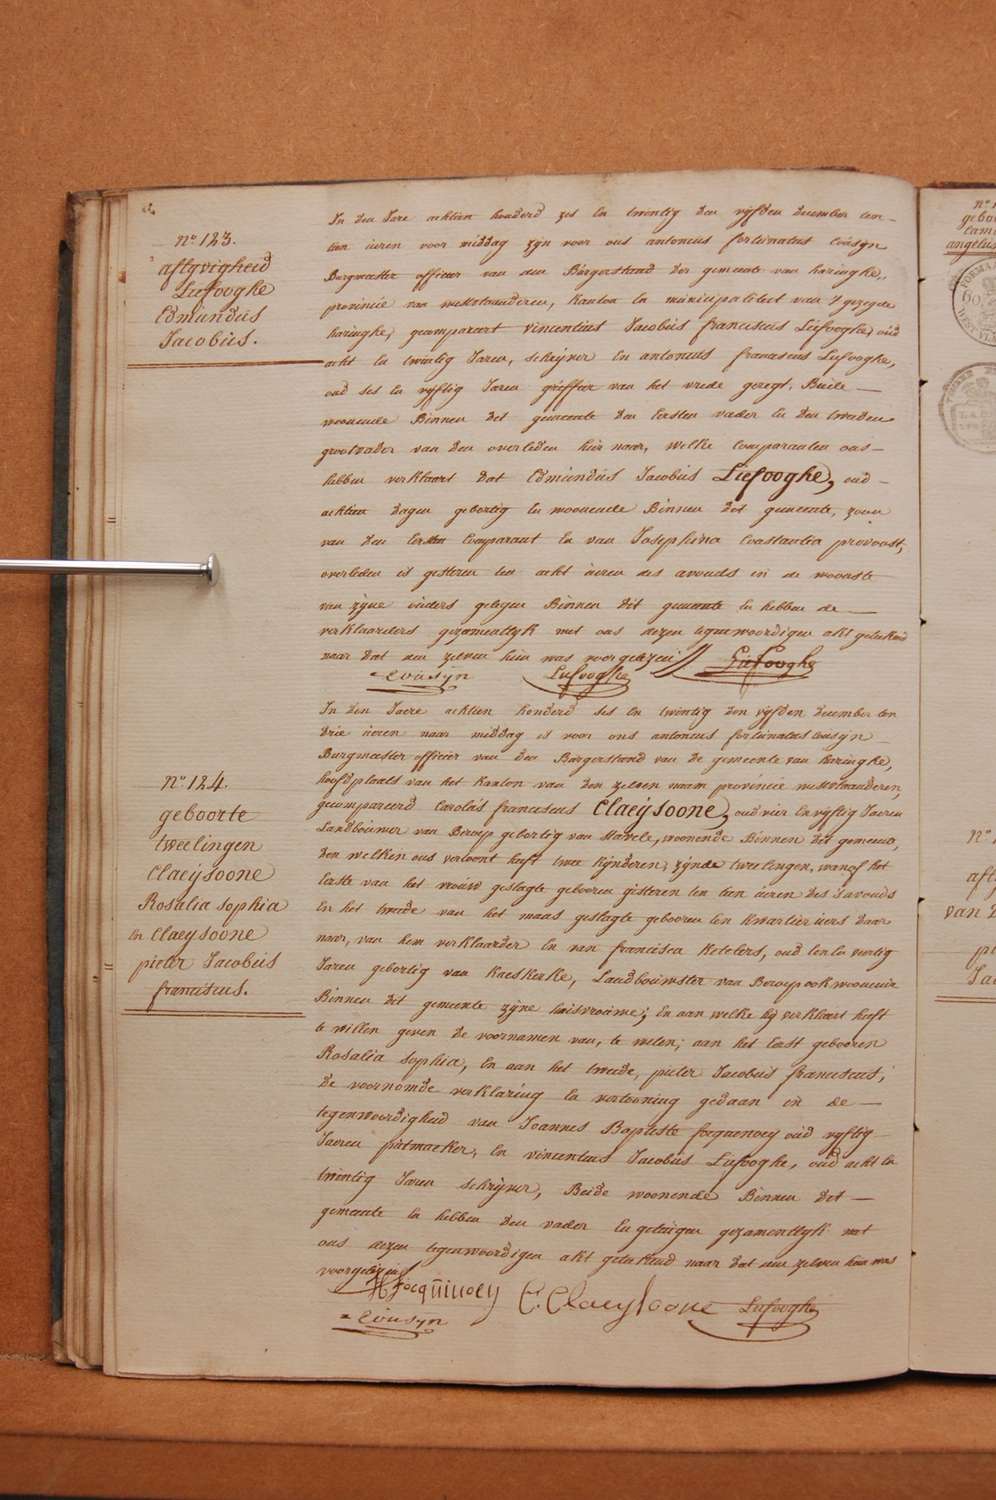 n.º 123.
aflyvigheid
Liefooghe
Edmundus
Jacobus.
In den Jare achtien honderd zes en twintig den vyfden december ten
tien ueren voor middag zyn voor ons antonius fortunatus Cousyn
Burgmeester officier van den Burgerstaad der gemeente van haringhe,
provincie van westvlaanderen, kanton en municipaliteit van 't gezegde
haringhe, gecompareert vincentius Jacobus franciscus Liefooghe, oud
acht en twintig Jaren, schryver en antonius franciscus Liefooghe,
oud ses en vyftig Jaren griffier van het vrede geregt, Beide
woonende Binnen dit gemeente den Eersten vader en den tweeden
grootvader van den overleden hier naer, welke Comparanten ons
hebben verklaart dat Edmundus Jacobus Liefooghe, oud
achtien dagen gebortig en woonende Binnen dit gemeente, zoon
van den Eersten Comparant en van Josephina Constantia provoost,
overleden is gisteren ten acht ueren des avonds in de wooste
van zyne ouders gelegen Binnen dit gemeente en hebben de
verklaerders gezamentlyk met ons dezen tegenwoordigen akt geteekend
naer dat den zelven hun was voorgelezen // Liefooghe
Cousyn Liefooghe
n.º 124.
geboorte
tweelingen
Claeysoone
Rosalia Sophia
en Claeysoone
pieter Jacobus
franciscus.
In den Jaere achtien honderd ses en twintig den vyfden december ten
drie ueren naer middag is voor ons antonius fortunatus Cousyn
Burgmeester officier van den Burgerstaad van de gemeente van haringhe,
hoofdplaets van het kanton van den zelven naem provincie westvlaanderen,
gecompareerd Carolus franciscus Claeysoone, oud vier en vyftig Jaeren
Landbouwer van Beroep gebortig van Stavele, woonende Binnen dit gemeente,
den welken ons vertoont heeft twee kynderen, zynde tweelingen, wanof het
Eerste van het vrouw geslagte gebooren gisteren ten tien ueren des s'avonds
En het tweede van het maas geslagte gebooren een kwartier uers daer
naer, van hem verklaarder En van francisca ketelers, oud een en veertig
Jaren gebortig van kaeskerke, Landbouwster van Beroep ook woonende
Binnen dit gemeente zyne huisvrouwe; En aen welke hy verklaart heeft
te willen geven de voornamen van, te weten; aen het Eerst gebooren
Rosalia Sophia, En aen het tweede, pieter Jacobus franciscus;
de voornomde verklaring en vertooning gedaen in de
tegenwoordigheid van Joannes Baptiste focquenoey oud vyftig
Jaeren pietmaeker, En vincentius Jacobus Liefooghe, oud acht en
twintig Jaren schryver, Beide woonende Binnen dit
gemeente en hebben den vader En getuigen gezamentlyk met
ons dezen tegenwoordigen akt geteekend naer dat den zelven hun was
voorgelezen
focquenoey C. Claeysoone Liefooghe
Cousyn